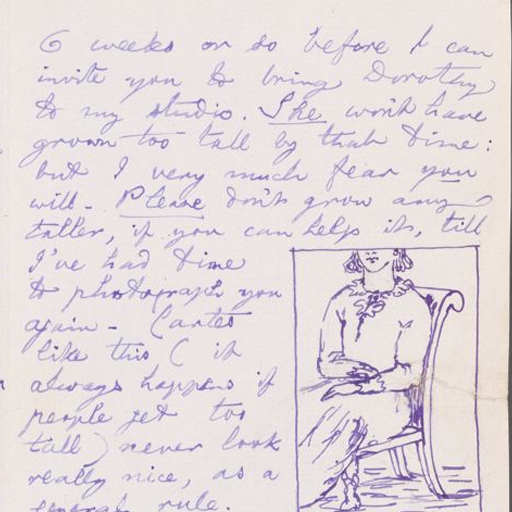 6 weeks or so before I can
invite you to bring Dorothy
to my studio. She won't have
grown too tall by that time:
but I very much fear you
will - Please don't grow any
taller, if you can help it, till
I've had time
to photograph you
again - Cartes
like this (it
always happens if
people get too
tall) never look
really nice, as a
general rule.